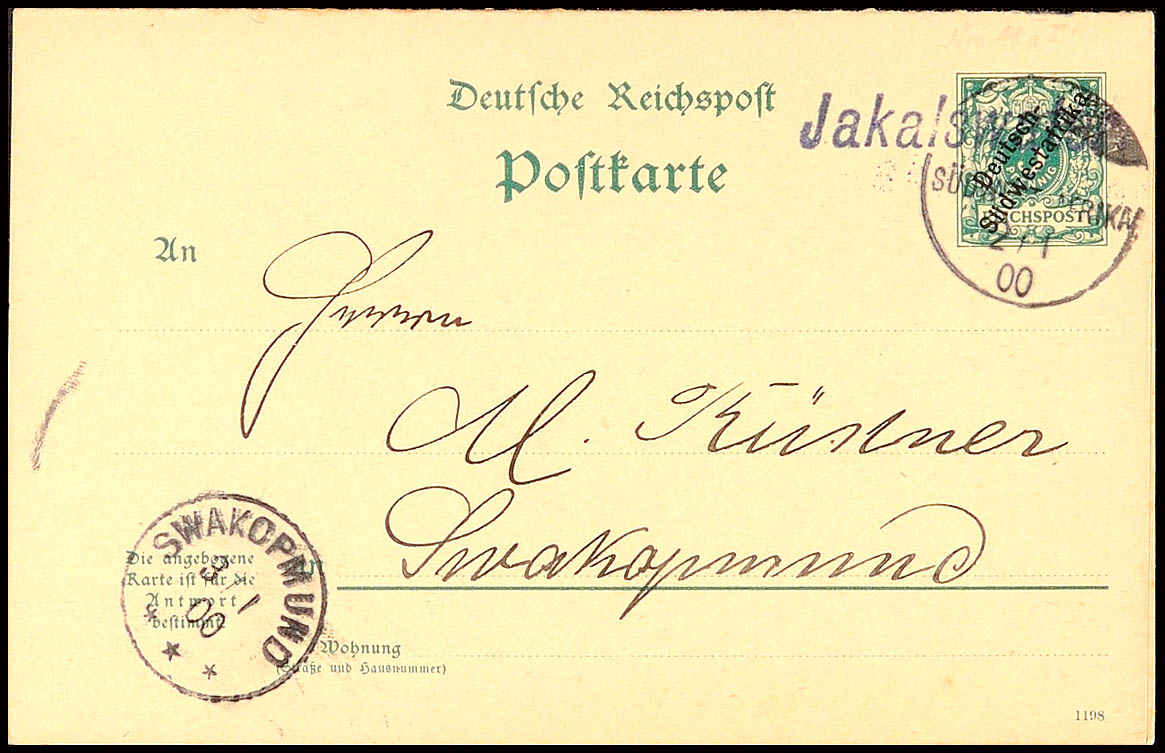 Deutsche Reichspost
Postkarte
Deutsch-
Südwestafrika
REICHSPOST
2/1
00
An
Herrn
M. Küstner
Swakopmund
SWAKOPMUND
3/1
00
Die angebogene
Karte ist für die
Antwort
bestimmt.
in
Wohnung
(Straße und Hausnummer)
1198